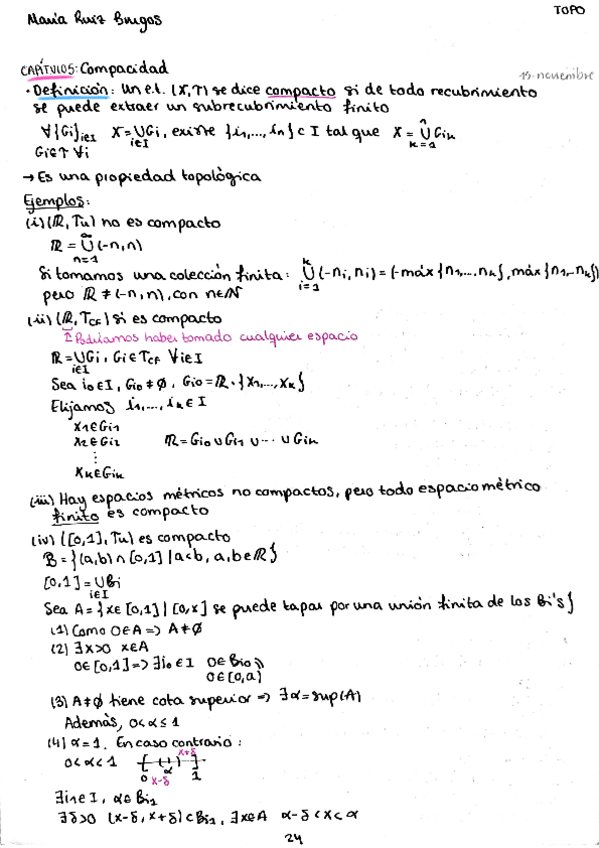 TOPO
María Ruiz Burgos
CAPÍTULO 5: Compacidad
15-noviembre
· Definición: Un e.t. (X,T) se dice compacto si de todo recubrimiento
se puede extraer un subrecubrimiento finito
∀{Gi}i∈I X = ∪Gi, existe {i1,...,in} ⊂ I tal que X = ∪Gik
i∈I k=1 n
Gi∈T ∀i
→ Es una propiedad topológica
Ejemplos:
(i) (ℝ, Tu) no es compacto
ℝ = ∪(-n,n)
n=1 ∞
Si tomamos una colección finita: ∪(-ni, ni) = (-máx{n1,...,nk}, máx{n1,..nk})
i=1 k
pero ℝ ≠ (-n,n), con n∈ℕ
(ii) (ℝ, TCF) si es compacto
↑ Podríamos haber tomado cualquier espacio
ℝ = ∪Gi, Gi∈TCF ∀i∈I
i∈I
Sea i0∈I, Gi0 ≠ ∅, Gi0 = ℝ \ {x1,...,xk}
Elijamos i1,...,ik ∈ I
x1∈Gi1
x2∈Gi2 ℝ = Gi0 ∪ Gi1 ∪ ··· ∪ Gik
⋮
xk∈Gik
(iii) Hay espacios métricos no compactos, pero todo espacio métrico
finito es compacto
(iv) ([0,1], Tu) es compacto
B = {(a,b) ∩ [0,1] | a<b, a,b∈ℝ}
[0,1] = ∪Bi
i∈I
Sea A = {x∈[0,1] | [0,x] se puede tapar por una unión finita de los Bi's}
(1) Como 0∈A => A≠∅
(2) ∃x>0 x∈A
0∈[0,1] => ∃i0∈I 0∈Bi0
0∈[0,a)
(3) A≠∅ tiene cota superior => ∃α=sup(A)
Además, 0<α≤1
(4) α=1. En caso contrario:
x+δ
0<α<1
0 α 1
x-δ
∃i1∈I, α∈Bi1
∃δ>0 (x-δ, x+δ) ⊂ Bi1, ∃x∈A α-δ<x<α
24